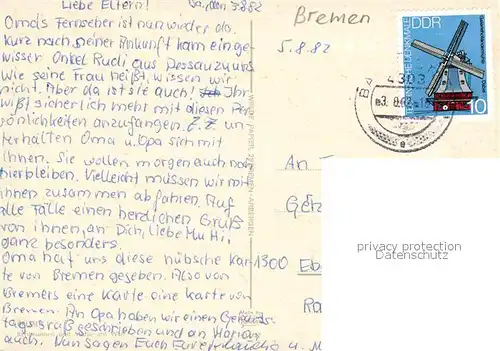 Liebe Eltern!
Ba, den 3.8.82
Omas Fernseher ist nun wieder da.
Kurz nach seiner Ankunft kam ein ge-
wisser Onkel Rudi aus Dessau zu uns.
Wie seine Frau heißt, wissen wir
nicht. Aber da ist sie auch! Ihr
wißt sicherlich mehr mit diesen Per-
sönlichkeiten anzufangen. Z.Z. un-
terhalten Oma u. Opa sich mit
ihnen. Sie wollen morgen auch noch
hierbleiben. Vielleicht müssen wir mit
ihnen zusammen abfahren. Auf
alle Fälle einen herzlichen Gruß
von ihnen, an Dich, liebe Mutti,
ganz besonders.
Oma hat uns diese hübsche Kar-
te von Bremen gegeben. Also von
Bremers eine Karte eine Karte von
Bremen. An Opa haben wir einen Geburts-
tagsgruß geschrieben und an
auch. Nun sagen Euch Eure u. M
Bremen
5.8.82
DDR
10
4303
3. 8. 82
e
An
1300
privacy protection
Datenschutz